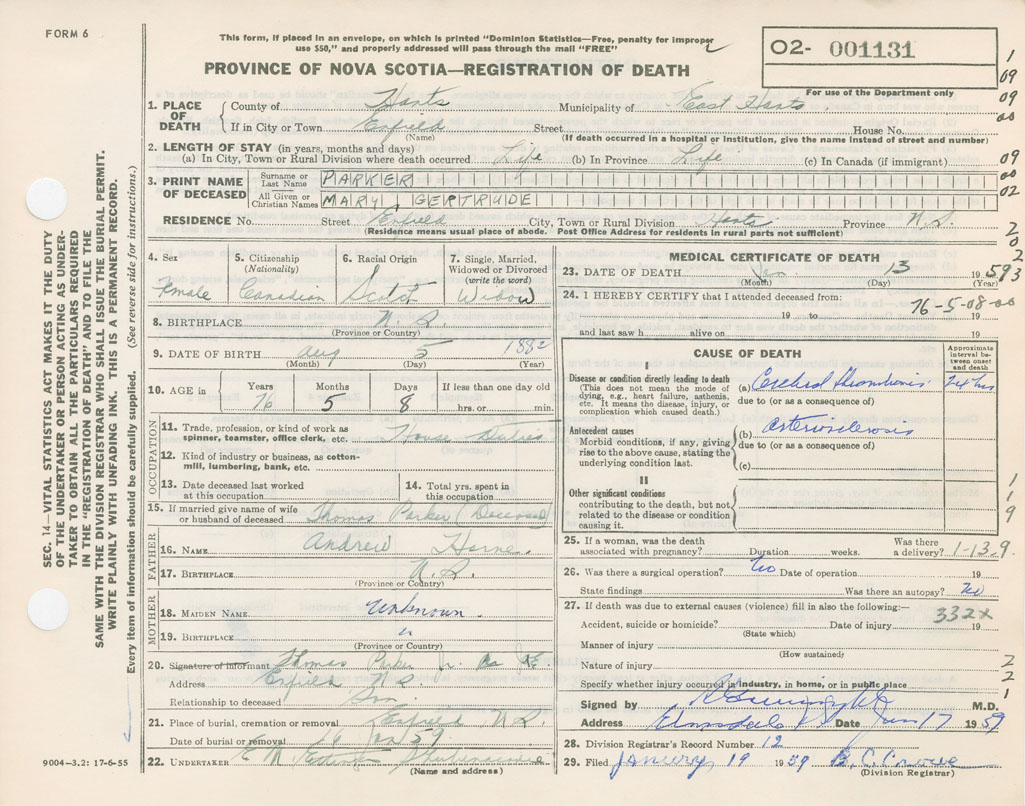 FORM 6
This form, if placed in an envelope, on which is printed "Dominion Statistics—Free, penalty for improper
use $50," and properly addressed will pass through the mail "FREE"
O2- 001131
For use of the Department only
PROVINCE OF NOVA SCOTIA—REGISTRATION OF DEATH
1. PLACE OF DEATH
County of Hants Municipality of East Hants
If in City or Town Enfield Street House No.
(Name) (If death occurred in a hospital or institution, give the name instead of street and number)
2. LENGTH OF STAY (in years, months and days)
(a) In City, Town or Rural Division where death occurred Life (b) In Province Life (c) In Canada (if immigrant)
3. PRINT NAME OF DECEASED
Surname or Last Name PARKER
All Given or Christian Names MARY GERTRUDE
RESIDENCE No. Street Enfield City, Town or Rural Division Hants Province N.S.
(Residence means usual place of abode. Post Office Address for residents in rural parts not sufficient)
4. Sex
Female
5. Citizenship
(Nationality)
Canadian
6. Racial Origin
Scotch
7. Single, Married, Widowed or Divorced
(write the word)
Widow
8. BIRTHPLACE N.S.
(Province or Country)
9. DATE OF BIRTH Aug 5 1882
(Month) (Day) (Year)
10. AGE in Years Months Days If less than one day old
76 5 8 hrs. or min.
OCCUPATION
11. Trade, profession, or kind of work as
spinner, teamster, office clerk, etc. House Duties
12. Kind of industry or business, as cotton-
mill, lumbering, bank, etc.
13. Date deceased last worked
at this occupation
14. Total yrs. spent in
this occupation
15. If married give name of wife
or husband of deceased Thomas Parker (Deceased)
FATHER
16. NAME Andrew Horne
17. BIRTHPLACE N.S.
(Province or Country)
MOTHER
18. MAIDEN NAME Unknown
19. BIRTHPLACE "
(Province or Country)
20. Signature of informant Thomas Parker Jr.
Address Enfield N.S.
Relationship to deceased Son
21. Place of burial, cremation or removal Enfield N.S.
Date of burial or removal 16 Jan 59
22. UNDERTAKER
(Name and address)
MEDICAL CERTIFICATE OF DEATH
23. DATE OF DEATH Jan 13 1959
(Month) (Day) (Year)
24. I HEREBY CERTIFY that I attended deceased from:
76-5-08-00
19 to 19
and last saw h alive on 19
CAUSE OF DEATH
Approximate interval between onset and death
I
Disease or condition directly leading to death
(This does not mean the mode of
dying, e.g., heart failure, asthenia,
etc. It means the disease, injury, or
complication which caused death.)
(a) Cerebral Thrombosis 24 hrs
due to (or as a consequence of)
Antecedent causes
Morbid conditions, if any, giving
rise to the above cause, stating the
underlying condition last.
(b) Arteriosclerosis
due to (or as a consequence of)
(c)
II
Other significant conditions
contributing to the death, but not
related to the disease or condition
causing it.
25. If a woman, was the death Was there
associated with pregnancy? Duration weeks. a delivery? 1-13.9
26. Was there a surgical operation? No Date of operation 19
State findings Was there an autopsy? No
27. If death was due to external causes (violence) fill in also the following:—
332X
Accident, suicide or homicide? Date of injury 19
(State which)
Manner of injury
(How sustained)
Nature of injury
Specify whether injury occurred in industry, in home, or in public place
Signed by M.D.
Address Elmsdale N.S. Date Jan 17 1959
28. Division Registrar's Record Number 12
29. Filed January 19 1959 B. C. Crowe
(Division Registrar)
SEC. 14—VITAL STATISTICS ACT MAKES IT THE DUTY
OF THE UNDERTAKER OR PERSON ACTING AS UNDER-
TAKER TO OBTAIN ALL THE PARTICULARS REQUIRED
IN THE "REGISTRATION OF DEATH" AND TO FILE THE
SAME WITH THE DIVISION REGISTRAR WHO SHALL ISSUE THE BURIAL PERMIT.
WRITE PLAINLY WITH UNFADING INK. THIS IS A PERMANENT RECORD.
Every item of information should be carefully supplied. (See reverse side for instructions.)
9004-3.2: 17-6-55
1
09
09
00
09
00
02
2
0
2
3
1
1
9
2
2
1